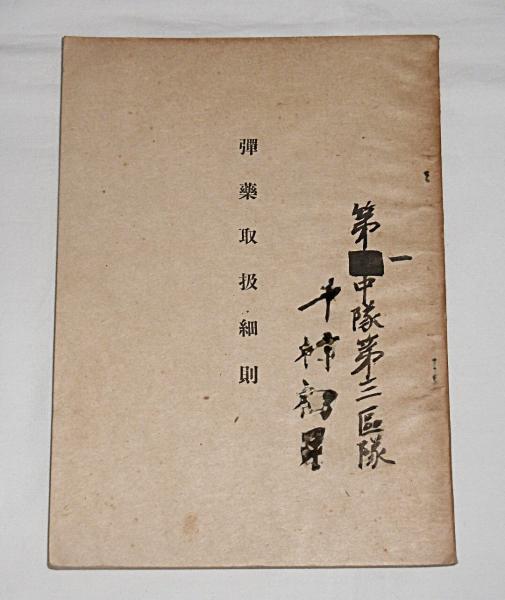 第一中隊第三區隊
彈藥取扱細則